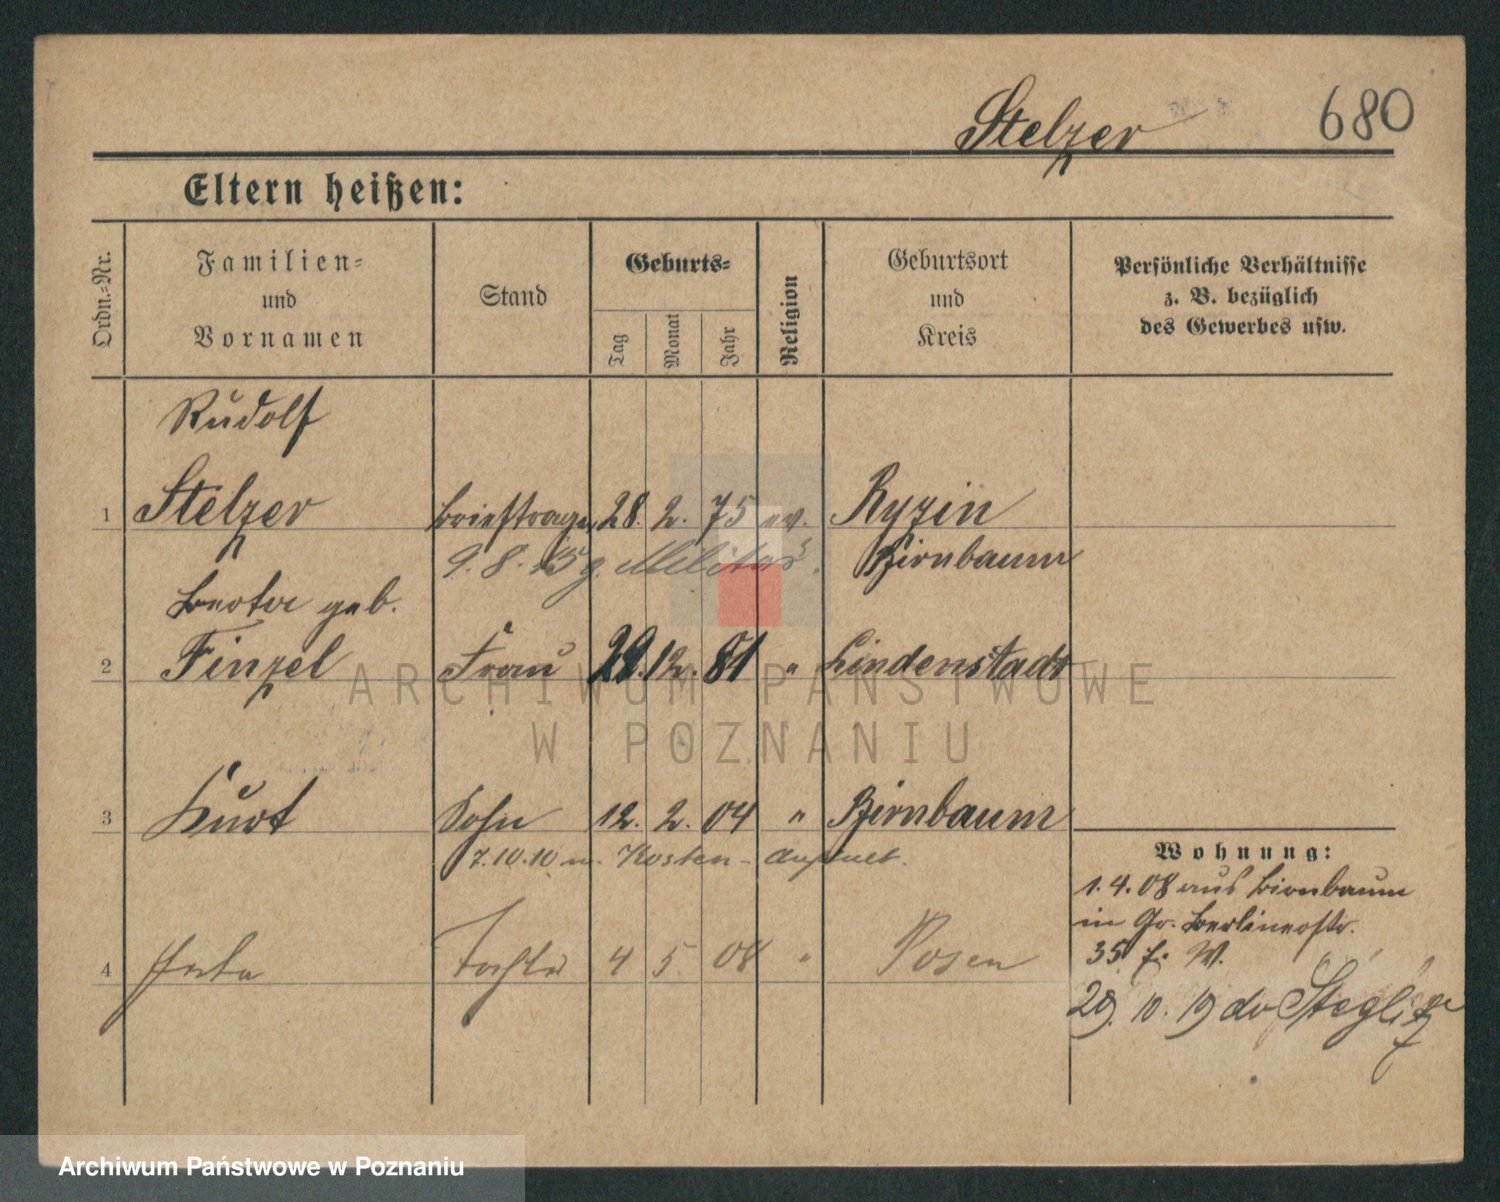 Stelzer
680
Eltern heißen:
Ordn.-Nr.
Familien-
und
Vornamen
Stand
Geburts-
Tag
Monat
Jahr
Religion
Geburtsort
und
Kreis
Persönliche Verhältnisse
z. B. bezüglich
des Gewerbes usw.
Rudolf
1 Stelzer Briefträger 28. 2. 75 ev. Ryzin
9. 8. 15 z. Militär. Birnbaum
Berta geb.
2 Finzel Frau 29. 12. 81 " Lindenstadt
3 Kurt Sohn 12. 2. 04 " Birnbaum
7.10.10 n. Kosten
4 Tochter 4 5 08 " Posen
Wohnung:
1. 4. 08 aus Birnbaum
in Gr. Berlinerstr.
35 W.
29. 10. 19 Steglitz
ARCHIWUM PAŃSTWOWE
W POZNANIU
Archiwum Państwowe w Poznaniu